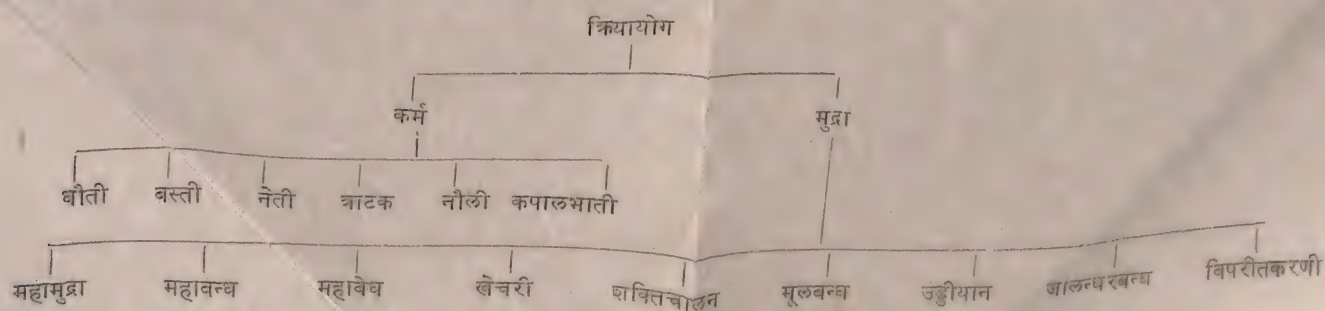 क्रियायोग
कर्म मुद्रा
धौती वस्ती नेती त्राटक नौली कपालभाती
महामुद्रा महावन्ध महावेध खेचरी शक्तिचालन मूलबन्ध उड्डीयान जालन्धरबन्ध विपरीतकरणी